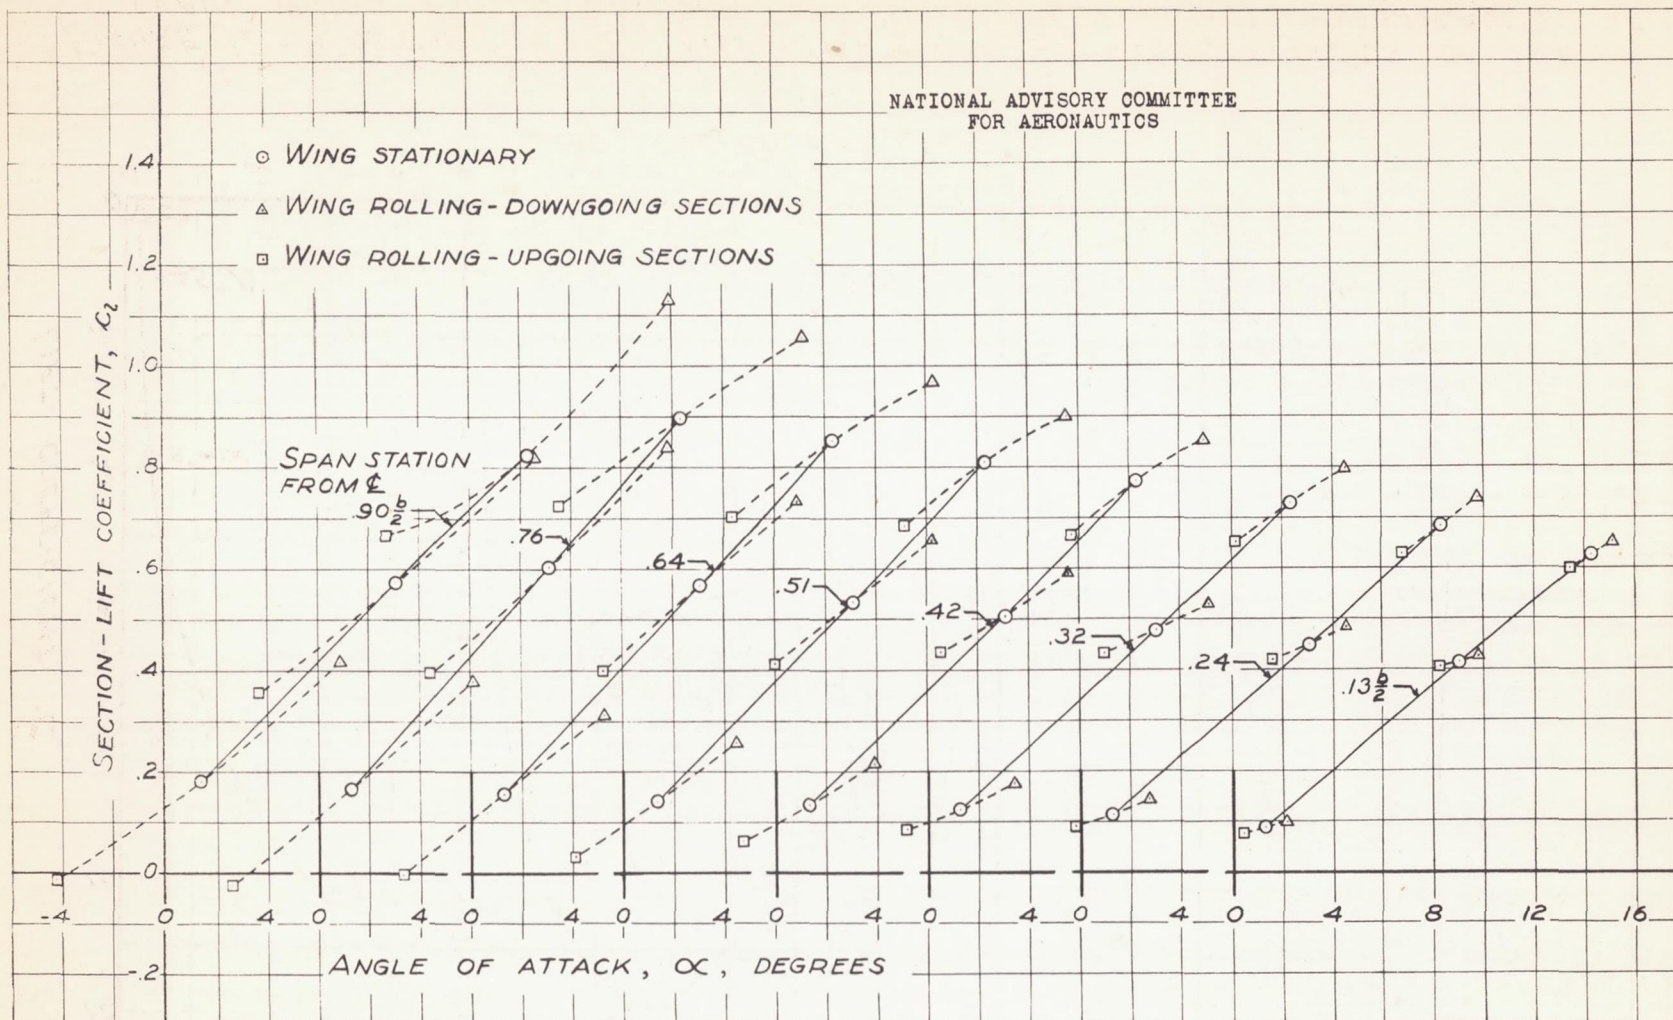 NATIONAL ADVISORY COMMITTEE
FOR AERONAUTICS
1.4
⊙ WING STATIONARY
△ WING ROLLING-DOWNGOING SECTIONS
1.2
⊡ WING ROLLING-UPGOING SECTIONS
SECTION-LIFT COEFFICIENT, c_l
1.0
.8
SPAN STATION
FROM ℄
.90 b/2
.76
.6
.64
.51
.42
.32
.4
.24
.13 b/2
.2
0
-4 0 4 0 4 0 4 0 4 0 4 0 4 0 4 0 4 8 12 16
-.2
ANGLE OF ATTACK, α, DEGREES